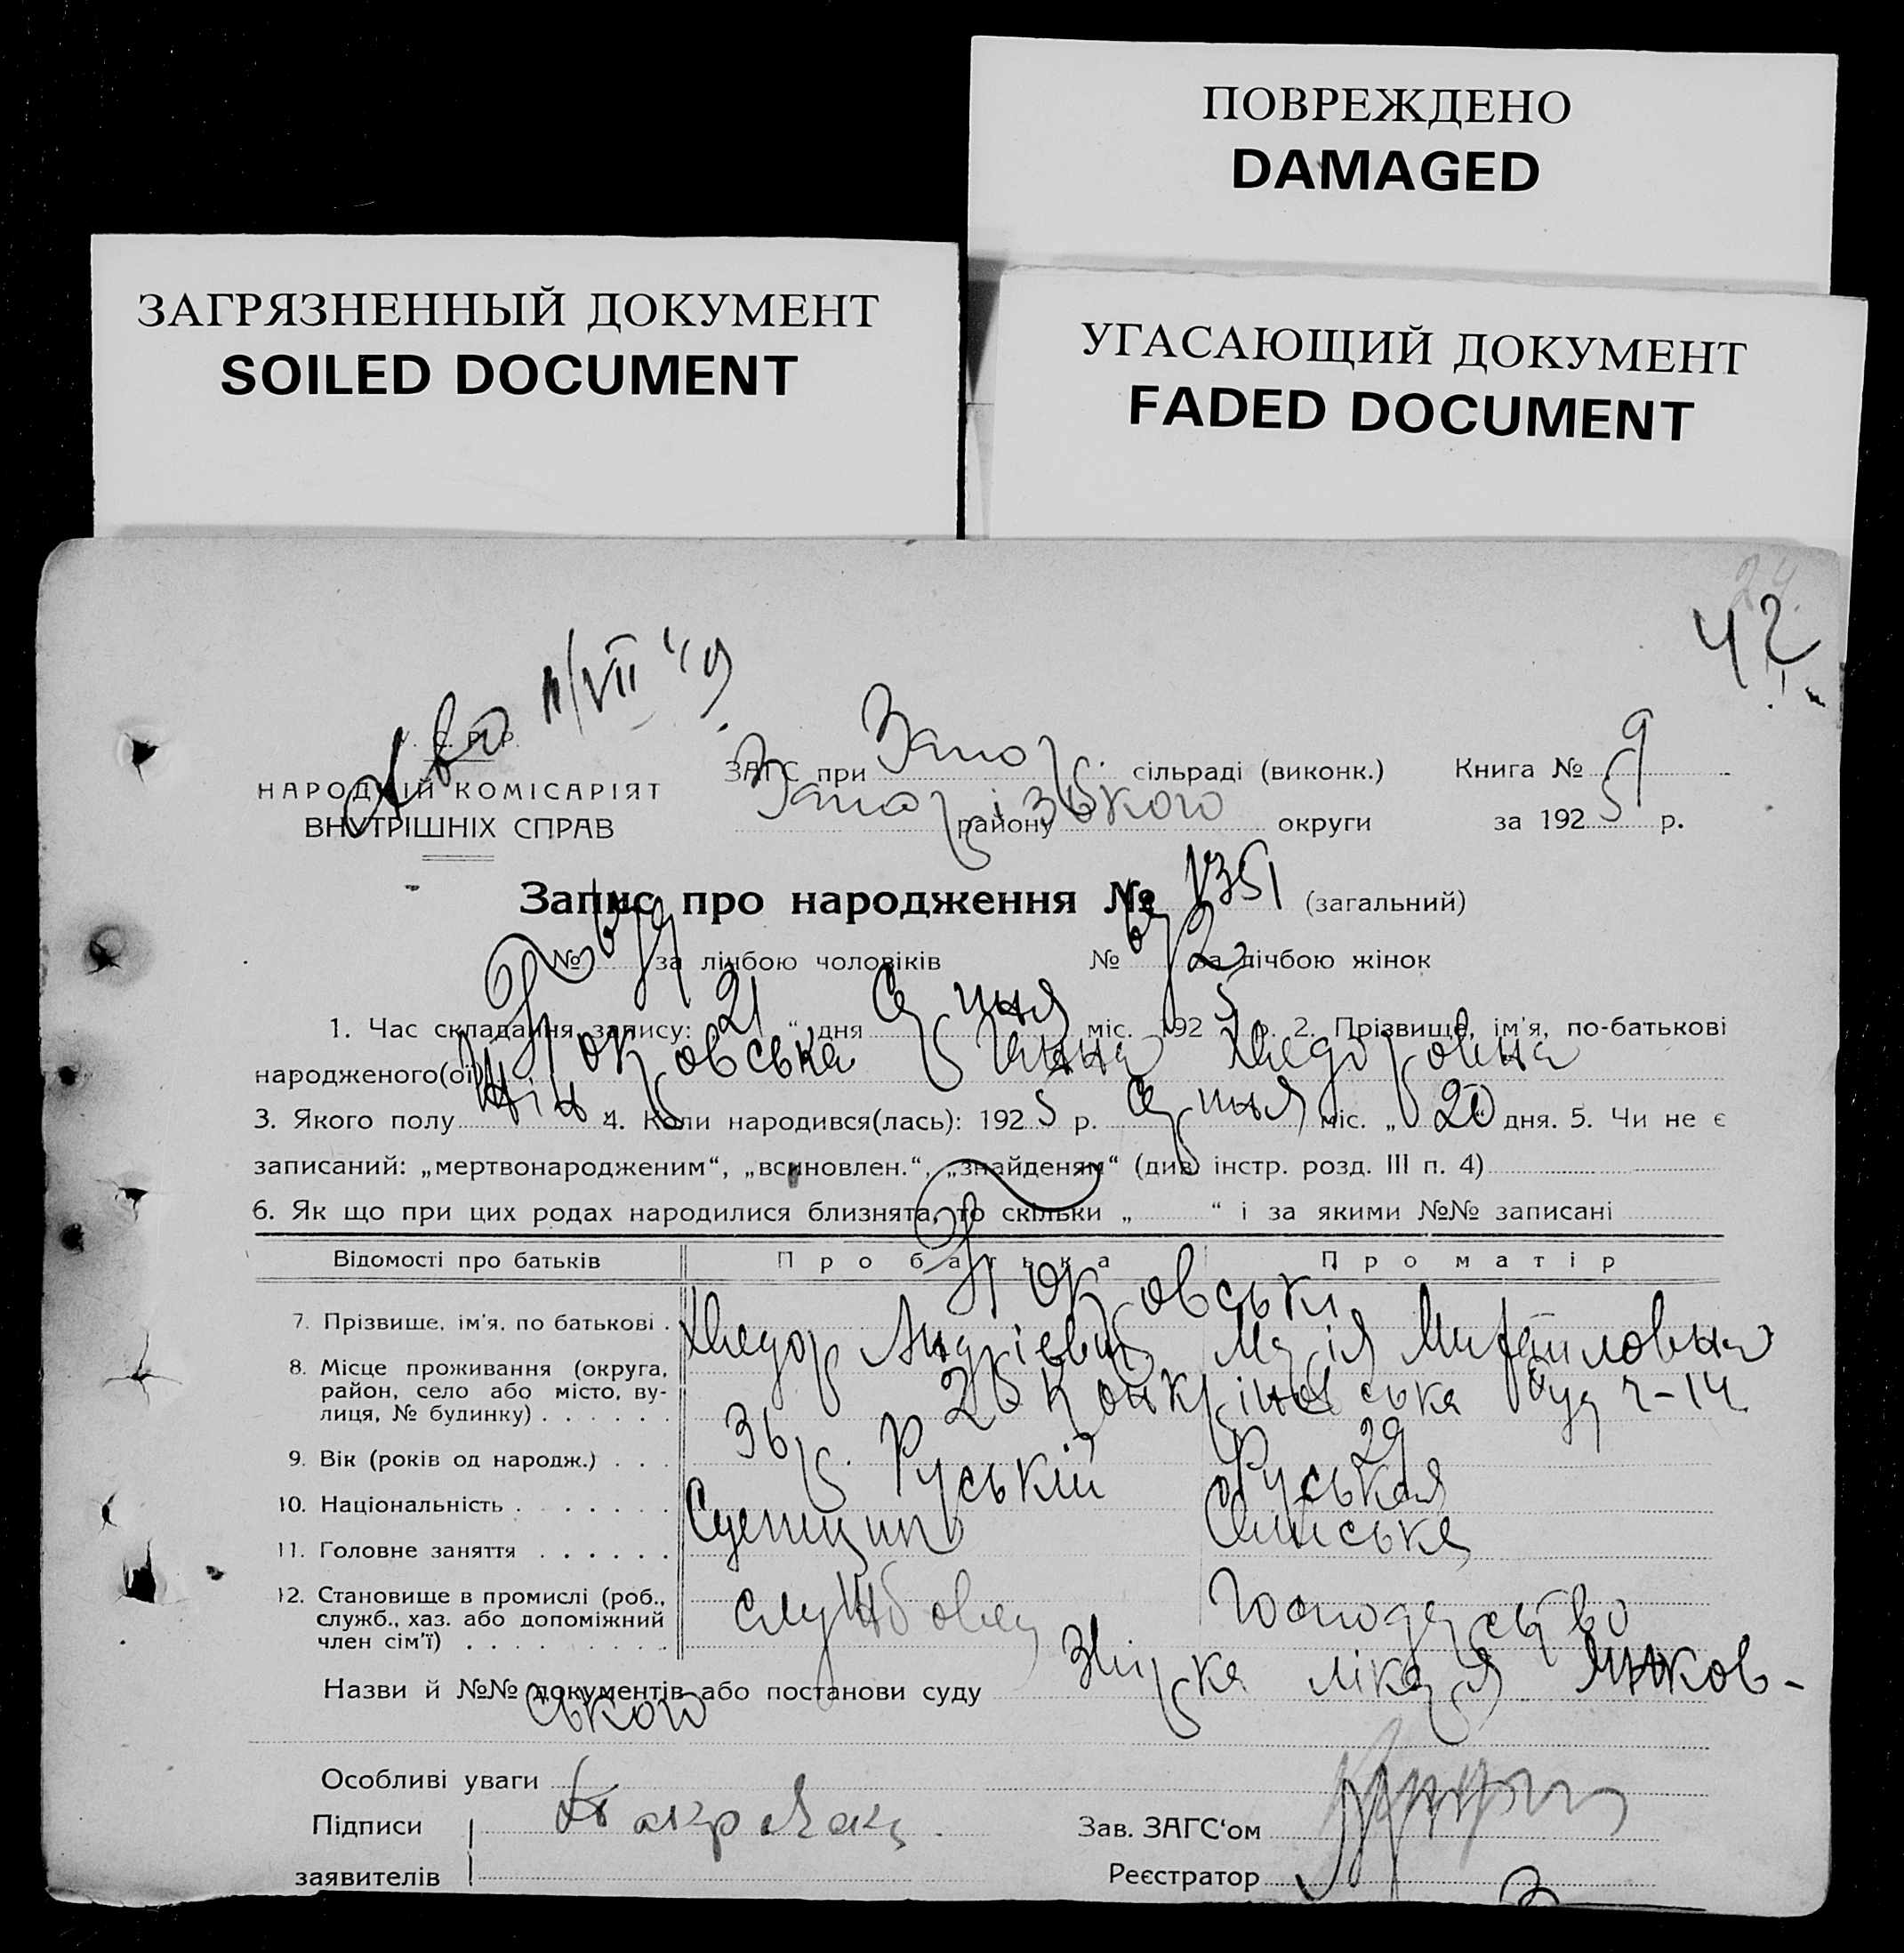 ПОВРЕЖДЕНО
DAMAGED
ЗАГРЯЗНЕННЫЙ ДОКУМЕНТ
SOILED DOCUMENT
УГАСАЮЩИЙ ДОКУМЕНТ
FADED DOCUMENT
24.
42
11/VII 49
У. С. Р. Р.
НАРОДНІЙ КОМІСАРІЯТ
ВНУТРІШНІХ СПРАВ
ЗАГС при Запор. сільраді (виконк.) Книга № 9
району Запорізького округи за 1925 р.
Запис про народження № 1351 (загальний)
№ 679 за лічбою чоловіків № 672 за лічбою жінок
1. Час складання запису: „21“ дня Серпня міс. 1925 р. 2. Прізвище, ім'я, по-батькові
народженого(ої) Покровська Ганна Хведоровна
3. Якого полу жін 4. Коли народився(лась): 1925 р. Серпня міс. „20 дня. 5. Чи не є
записаний: „мертвонародженим“, „всиновлен.“, „знайденям“ (див. інстр. розд. III п. 4)
6. Як що при цих родах народилися близнята, то скільки „ “ і за якими №№ записані
Відомості про батьків Про батька Про матір
Покровськи
7. Прізвише, ім'я, по батькові . Хведор Андрієвич Марія Михайловна
8. Місце проживання (округа,
район, село або місто, ву-
лиця, № будинку) . . . . . . буд ч-14
9. Вік (років од народж.) . . . 36 р. 29
10. Національність . . . . . . . Руський Руськая
11. Головне заняття . . . . . .
12. Становище в промислі (роб.,
служб., хаз. або допоміжний
член сім'ї) . . . . . . . . . службовец господарство
Назви й №№ документів або постанови суду Звірка лікаря Янков-
ського
Особливі уваги
Підписи
заявителів
Зав. ЗАГС'ом
Реєстратор